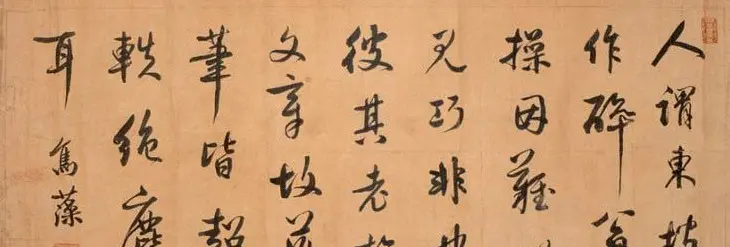 人謂東坡
作醉翁
操因難
見巧非也
彼其老於
文章故落
筆皆超
軼絕塵
耳
寯藻